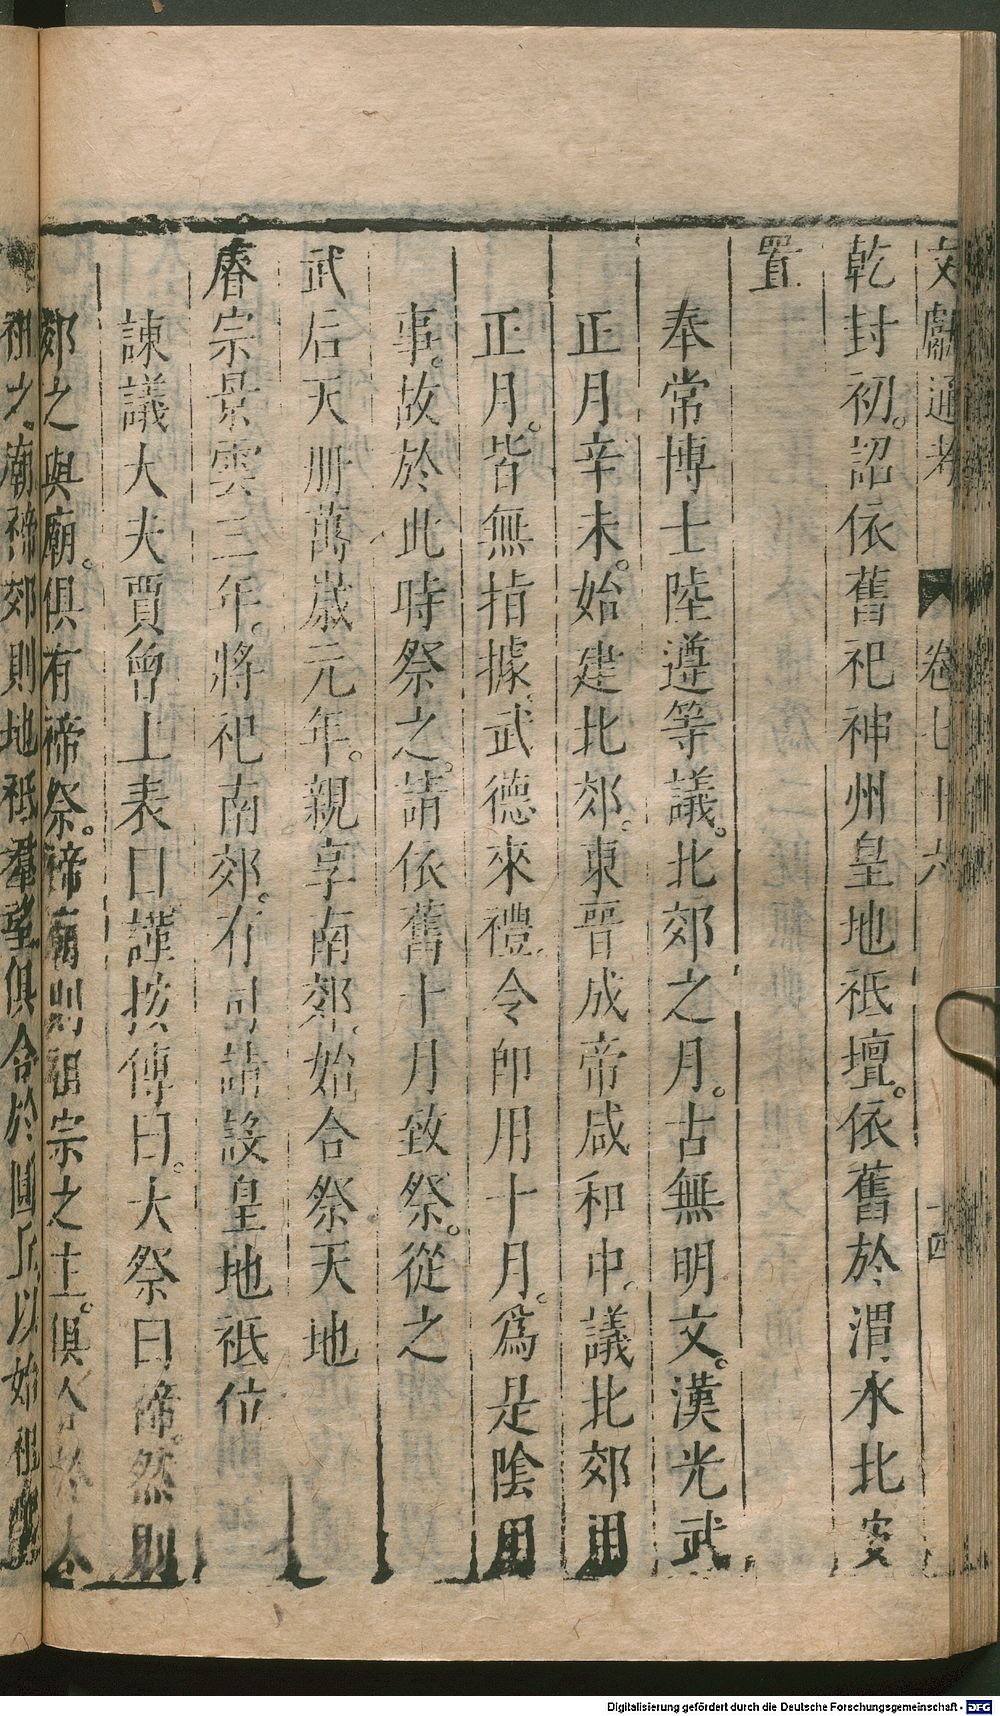 文獻通考 卷七十六 十四
乾封初。詔依舊祀神州皇地祇壇。依舊於渭水北安
置
奉常博士陸遵等議。北郊之月。古無明文。漢光武
正月辛未。始建北郊。東晉成帝咸和中。議北郊用
正月。皆無指據。武德來禮令即用十月。為是陰用
事。故於此時祭之。請依舊十月致祭。從之
武后天册萬歲元年。親享南郊。始合祭天地
睿宗景雲三年。將祀南郊。有司請設皇地祇位
諫議大夫賈曾上表曰謹按傳曰。大祭曰禘。然則
郊之與廟。俱有禘祭。禘廟則祖宗之主。俱合於太
祖之廟。禘郊則地祇羣望俱合於圓丘。以始祖
Digitalisierung gefördert durch die Deutsche Forschungsgemeinschaft - DFG